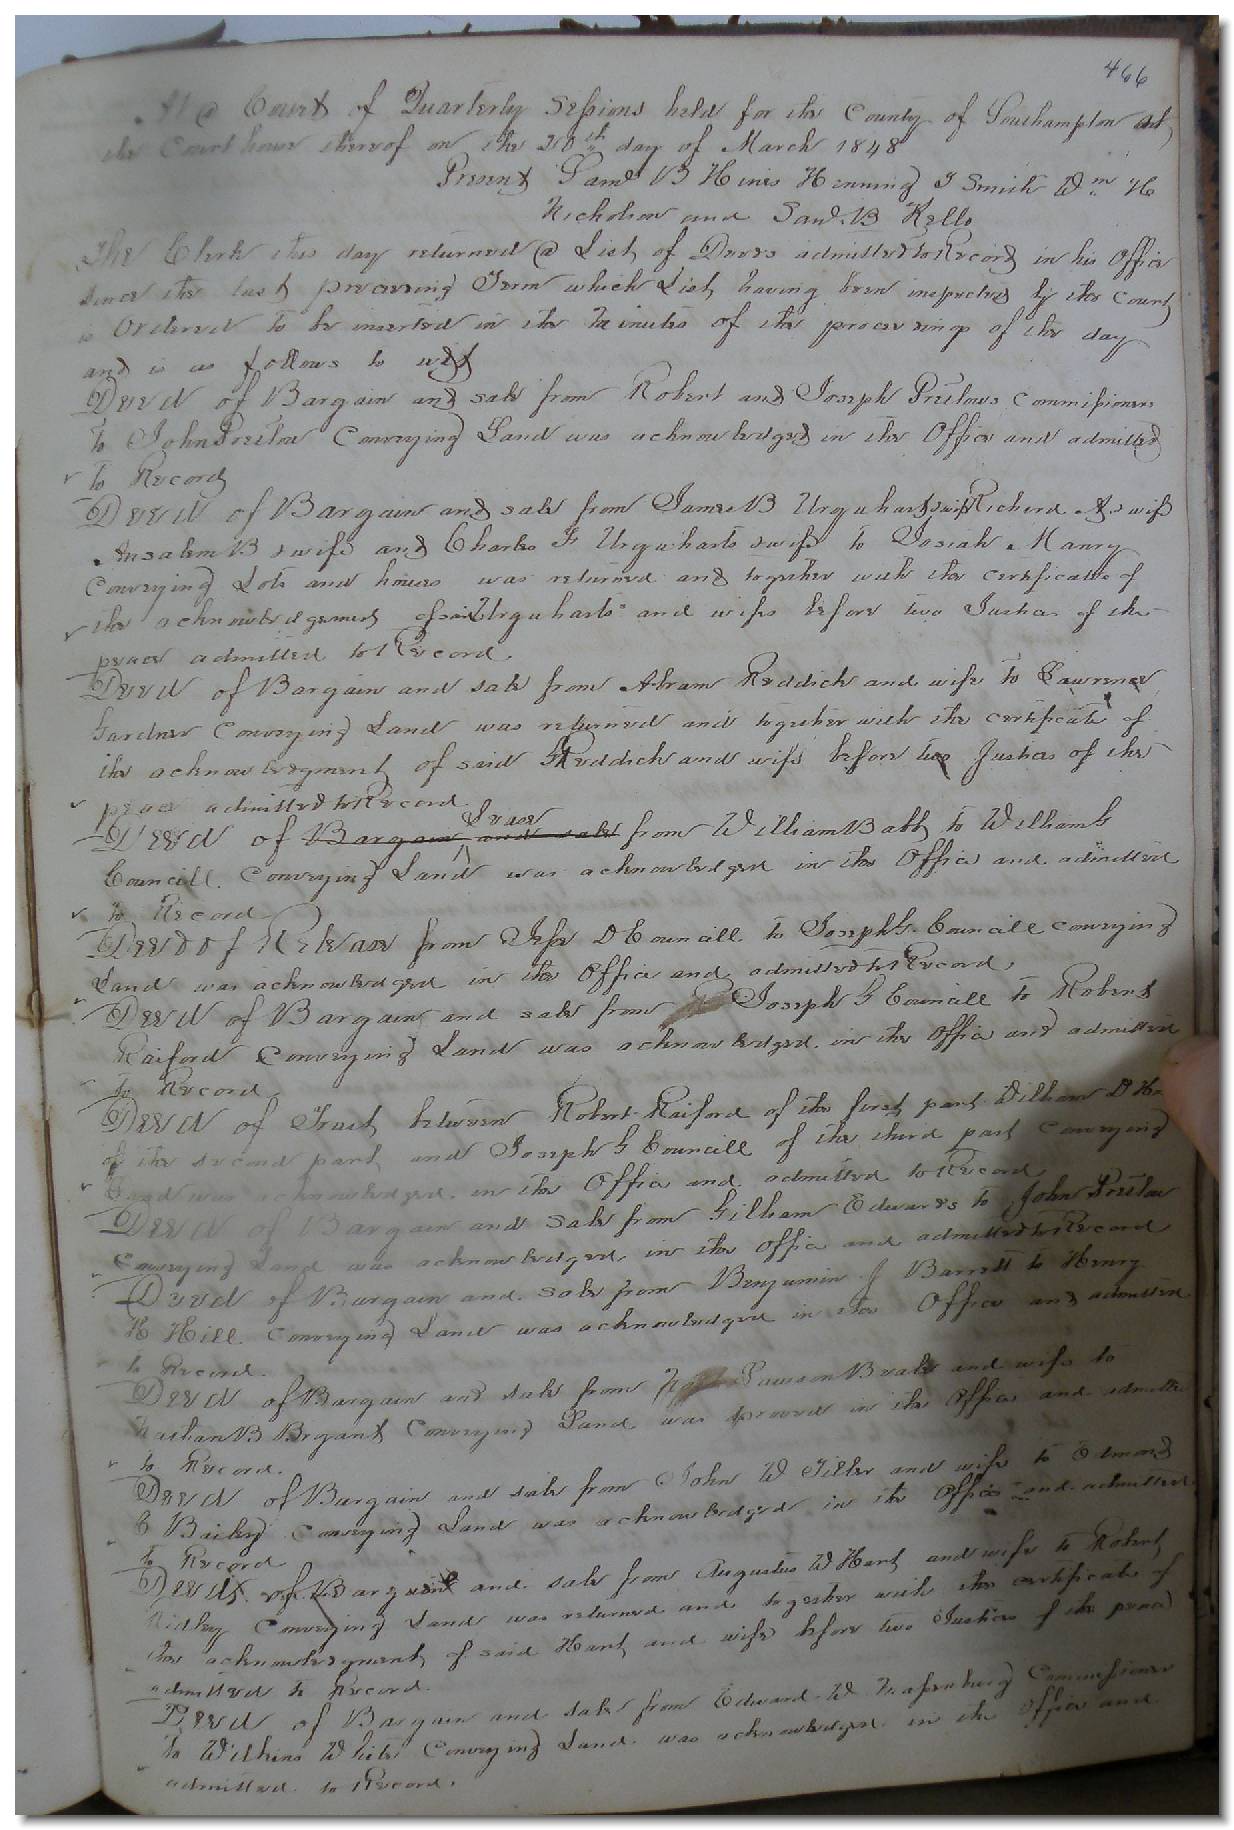 466
At a Court of Quarterly Sessions held for the County of Southampton at
the Court house thereof on the 20th day of March 1848
Present Saml B Hines Henning T Smith Wm H
Nicholson and Saml B Kello
The Clerk this day returned a List of Deeds admitted to Record in his Office
since the last preceeding Term which List having been inspected by the Court
is Ordered to be inserted in the Minutes of the proceedings of the day
and is as follows to wit
Deed of Bargain and sale from Robert and Joseph Pretlows Commissioners
to John Pretlow Conveying Land was acknowledged in the Office and admitted
to Record
Deed of Bargain and sale from James B Urquhart & wife Richard A & wife
Ansalem B & wife and Charles F Urquharts & wife to Josiah Manry
Conveying Lots and houses was returned and together with the certificate of
the acknowledgement of said Urquharts and wifes before two Justices of the
peace admitted to Record.
Deed of Bargain and sale from Abram Reddick and wife to Lawrence
Gardner Conveying Land was returned and together with the certificate of
the acknowledgment of said Reddick and wife before two Justices of the
peace admitted to Record
Deed of Bargain and sale from William Babb to William G
Councill. Conveying Land was acknowledged in the Office and admitted
to Record
Deed of Release from Jesse D Councill to Joseph G. Councill conveying
Land was acknowledged in the Office and admitted to Record.
Deed of Bargain and sale from Joseph G Councill to Robert
Raiford Conveying Land was acknowledged in the Office and admitted
to Record
Deed of Trust between Robert Raiford of the first part William D
of the second part and Joseph G Councill of the third part Conveying
Land was acknowledged in the Office and admitted to Record
Deed of Bargain and Sale from Gilliam Edwards to John Pretlow
Conveying Land was acknowledged in the Office and admitted to Record
Deed of Bargain and sale from Benjamin J Barrett to Henry
H Hill Conveying Land was acknowledged in the Office and admitted
to Record.
Deed of Bargain and sale from Lawson Beale and wife to
Nathan B Bryant Conveying Land was proved in the Office and admitted
to Record.
Deed of Bargain and sale from John W Tiller and wife to Edmond
Bailey Conveying Land was acknowledged in the Office and admitted
to Record
Deed of Bargain and sale from Augustus W Hart and wife to Robert
Ridley Conveying Land was returned and together with the certificate of
the acknowledgment of said Hart and wife before two Justices of the peace
admitted to Record.
Deed of Bargain and sale from Edward W Massenburg Commissioner
to Wilkins White Conveying Land was acknowledged in the Office and
admitted to Record.